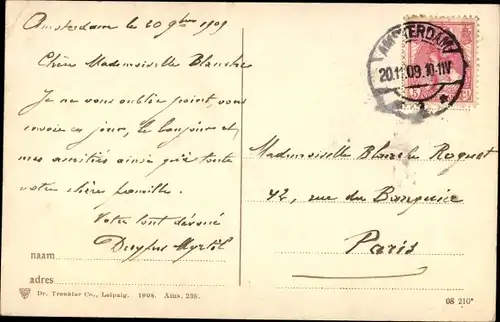 Amsterdam le 20 9bre 1909
Chère Mademoiselle Blanche
Je ne vous oublie point, vous
envoie ce jour, le bonjour et
mes amitiés ainsi qu'à toute
votre chère famille.
Votre tout dévoué
Dreyfus Myrtil
naam
adres
Dr. Trenkler Co., Leipzig. 1908. Ams. 238.
AMSTERDAM
20.11.09.10-11V
2
5
Mademoiselle Blanche Roguet
42, rue du Banquier
Paris
08 210*